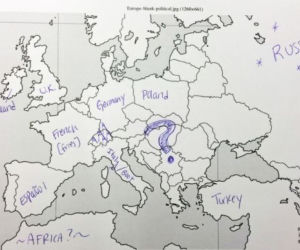 Europe-blank-political.jpg (1260×661)
* RUSS
*
U.K.
Germany
Poland
French
[fries]
Italy
ESPAÑOL
?
Turkey
~AFRICA?~